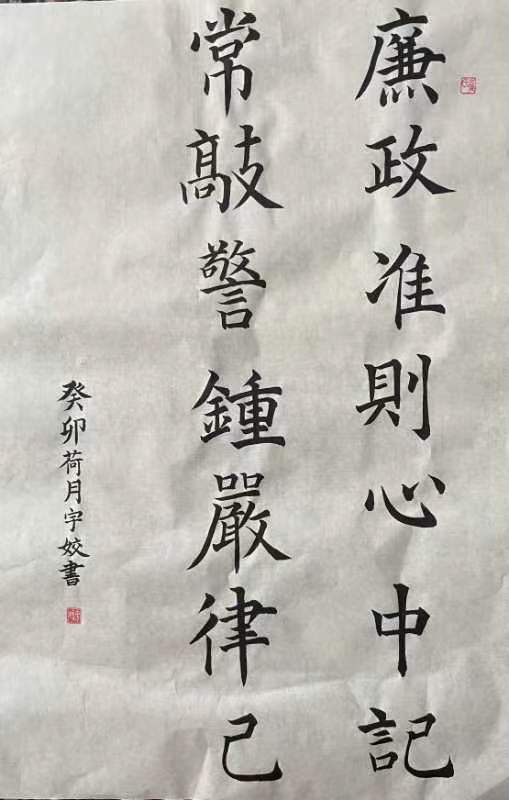 廉政准則心中記
常敲警鍾嚴律己
癸卯荷月宇姣書